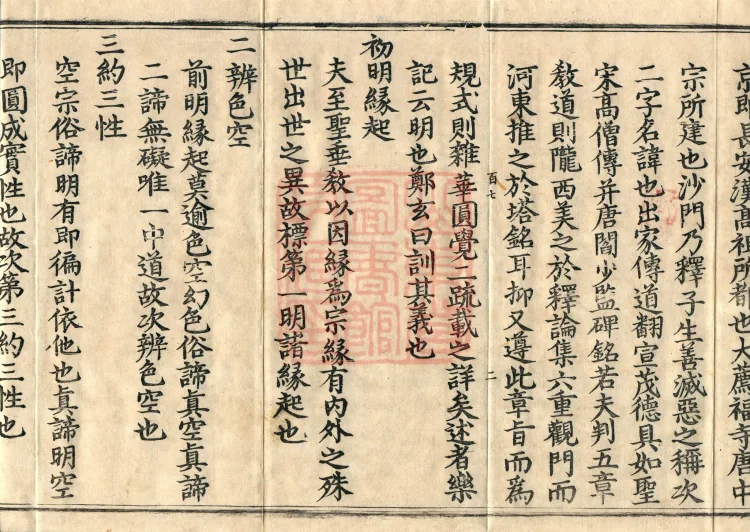 京即長安漢高祖所都也大薦福寺唐中
宗所建也沙門乃釋子生善滅惡之稱次
二字名諱也出家傳道翻宣茂德具如聖
宋高僧傳并唐閻少監碑銘若夫判五章
教道則隴西美之於釋論集六重觀門而
河東推之於塔銘耳抑又遵此章旨而為
百七
二
規式則雜華圓覺二疏載之詳矣述者樂
記云明也鄭玄曰訓其義也
初明緣起
夫至聖垂教以因緣為宗緣有內外之殊
世出世之異故標第一明諸緣起也
二辨色空
前明緣起莫逾色空幻色俗諦真空真諦
二諦無礙唯一中道故次辨色空也
三約三性
空宗俗諦明有即徧計依他也真諦明空
即圓成實性也故次第三約三性也